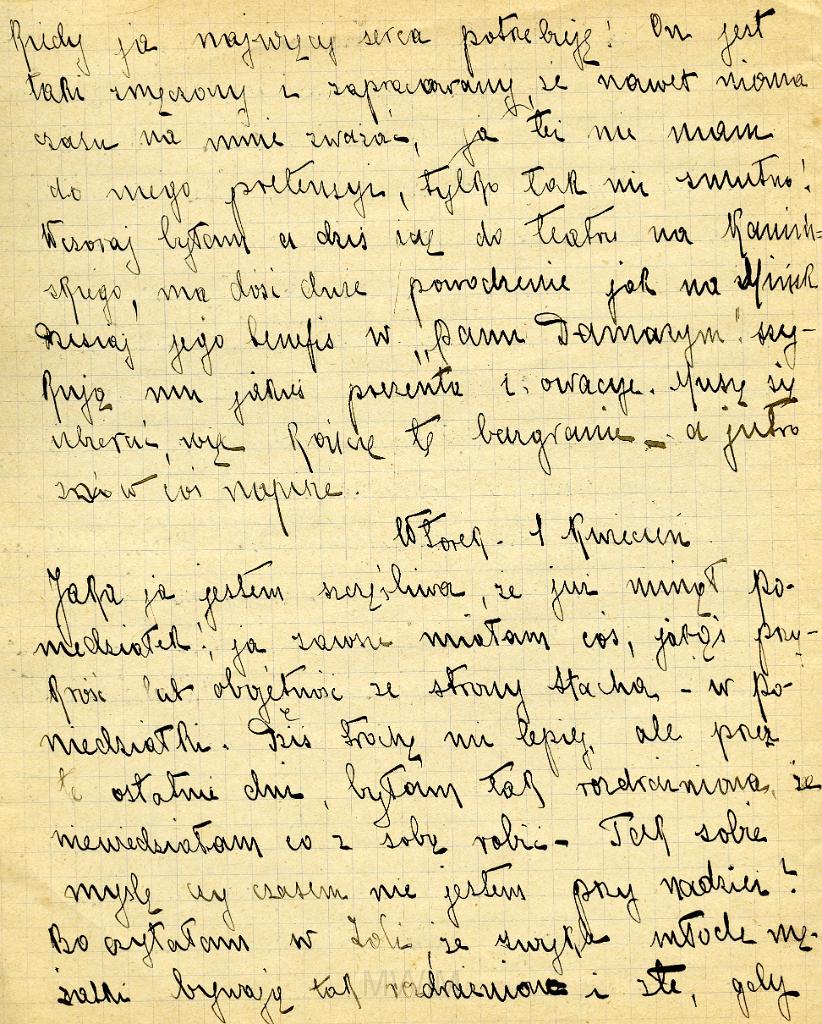 Kiedy ja najwięcej serca potrzebuję! On jest
taki zmęczony i zapracowany, że nawet niema
czasu na mnie zważać, ja też nie mam
do niego pretensyi, tylko tak mi smutno!
Wczoraj byłam a dziś idę do teatru na Kamiń=
skiego, ma dość duże powodzenie jak na Mińsk
Dzisiaj jego benefis w „Panu Damazym". szy-
kują mu jakieś prezenta i owacye. Muszę się
ubierać, więc kończę tę bazgraninę - a jutro
znów coś napiszę.
Wtorek. 1 Kwiecień
Jaka ja jestem szczęśliwa, że już minął po-
niedziałek!, ja zawsze miałam coś, jakąś przy-
krość lub obojętność ze strony Stacha, - w po-
niedziałki. Dziś trochę mi lepiej, ale przez
te ostatnie dni, byłam tak rozdrażniona, że
niewiedziałam co z sobą robić - Tak sobie
myślę czy czasem nie jestem przy nadziei?
Bo czytałam w Zoli, że zwykle młode mę-
żatki bywają tak rozdrażnione i złe, gdy